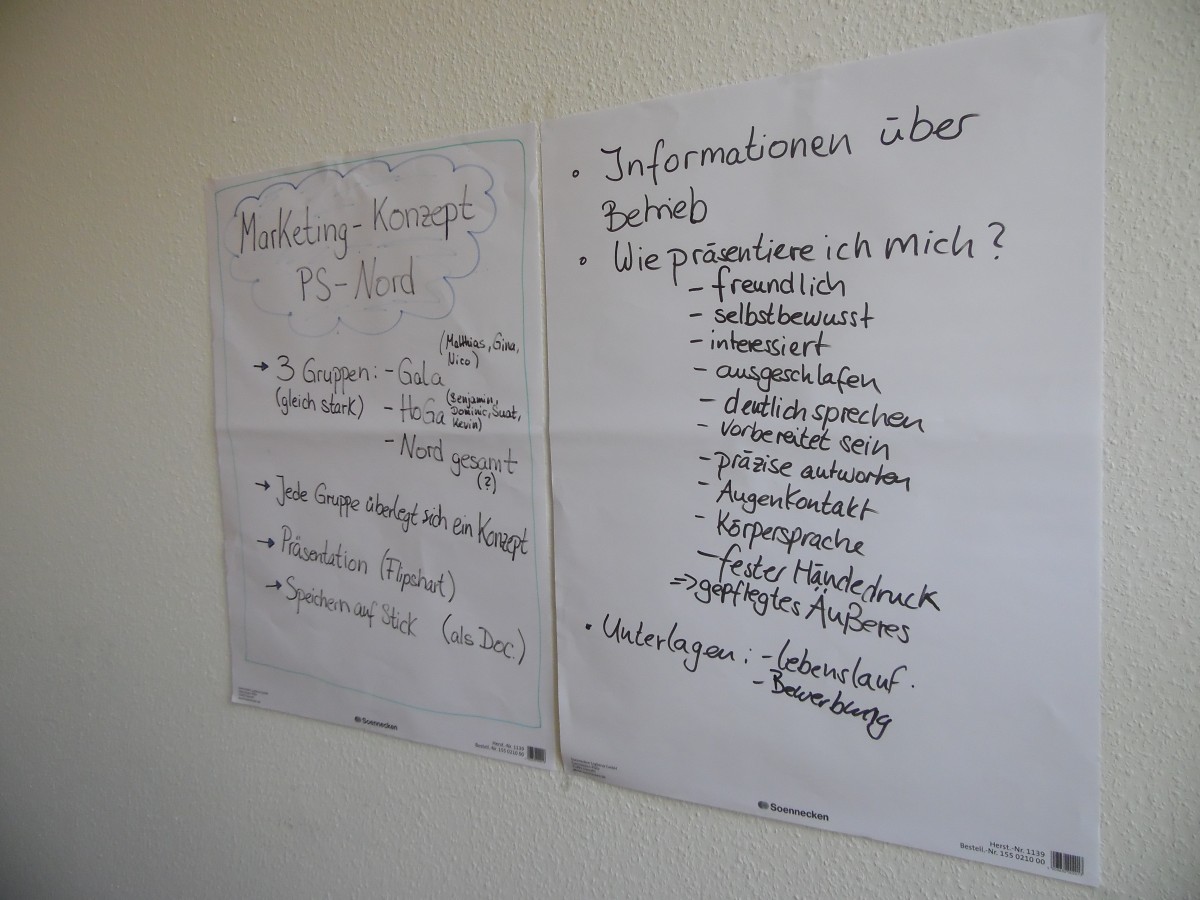 Marketing-Konzept
PS-Nord
(Matthias, Gina,
Nico)
→ 3 Gruppen: - Gala
(gleich stark) - HoGa (Benjamin,
Dominic, Suat,
Kevin)
- Nord gesamt
(?)
→ Jede Gruppe überlegt sich ein Konzept
→ Präsentation (Flipchart)
→ Speichern auf Stick (als Doc.)
Soennecken
Herst.-Nr. 1139
Bestell.-Nr. 155 0210 00
• Informationen über
Betrieb
• Wie präsentiere ich mich?
- freundlich
- selbstbewusst
- interessiert
- ausgeschlafen
- deutlich sprechen
- vorbereitet sein
- präzise antworten
- Augenkontakt
- Körpersprache
- fester Händedruck
=> gepflegtes Äußeres
• Unterlagen: - Lebenslauf.
- Bewerbung
Soennecken
Herst.-Nr. 1139
Bestell.-Nr. 155 0210 00